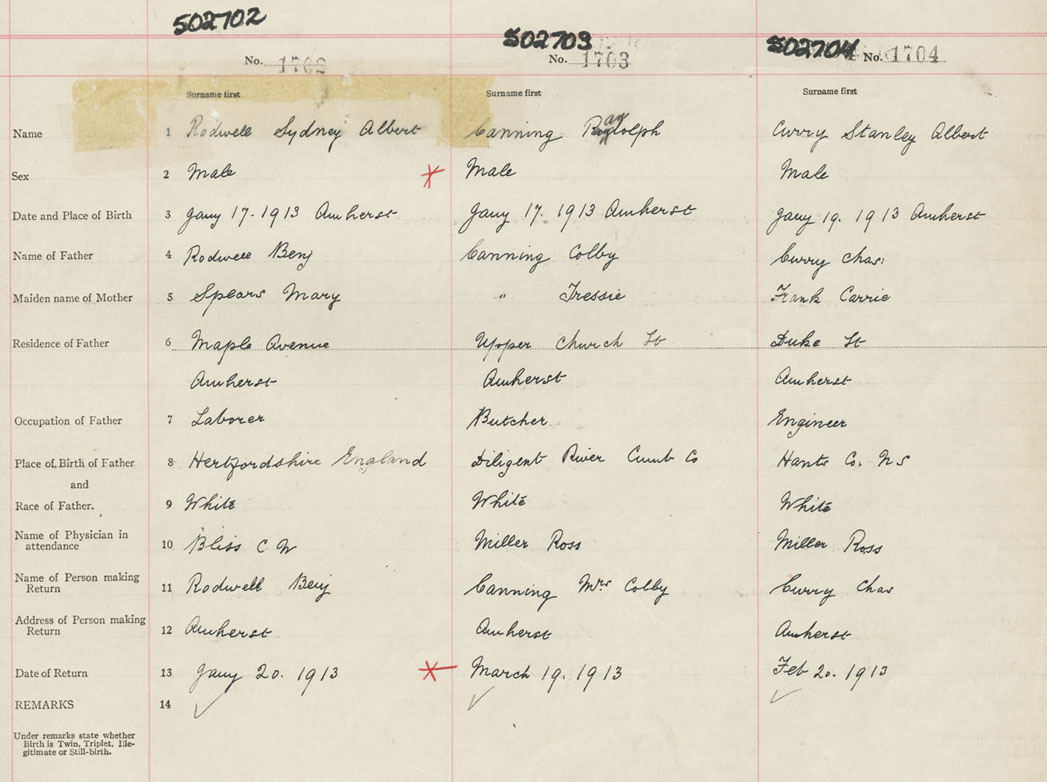 502702 502703 502704
No. 1702 No. 1703 No. 1704
Surname first Surname first Surname first
Name 1 Rodwell Sydney Albert Canning Randolph Curry Stanley Albert
Sex 2 Male Male Male
Date and Place of Birth 3 Jany 17. 1913 Amherst Jany 17. 1913 Amherst Jany 19. 1913 Amherst
Name of Father 4 Rodwell Benj Canning Colby Curry Chas
Maiden name of Mother 5 Spears Mary " Tressie Frank Carrie
Residence of Father 6 Maple Avenue Upper Church St Duke St
Amherst Amherst Amherst
Occupation of Father 7 Laborer Butcher Engineer
Place of Birth of Father 8 Hertfordshire England Diligent River Cumb Co Hants Co. N S
and
Race of Father. 9 White White White
Name of Physician in
attendance 10 Bliss C W Miller Ross Miller Ross
Name of Person making
Return 11 Rodwell Benj Canning Mrs Colby Curry Chas
Address of Person making
Return 12 Amherst Amherst Amherst
Date of Return 13 Jany 20. 1913 March 19. 1913 Feb 20. 1913
REMARKS 14
Under remarks state whether
Birth is Twin, Triplet, Ille-
gitimate or Still-birth.